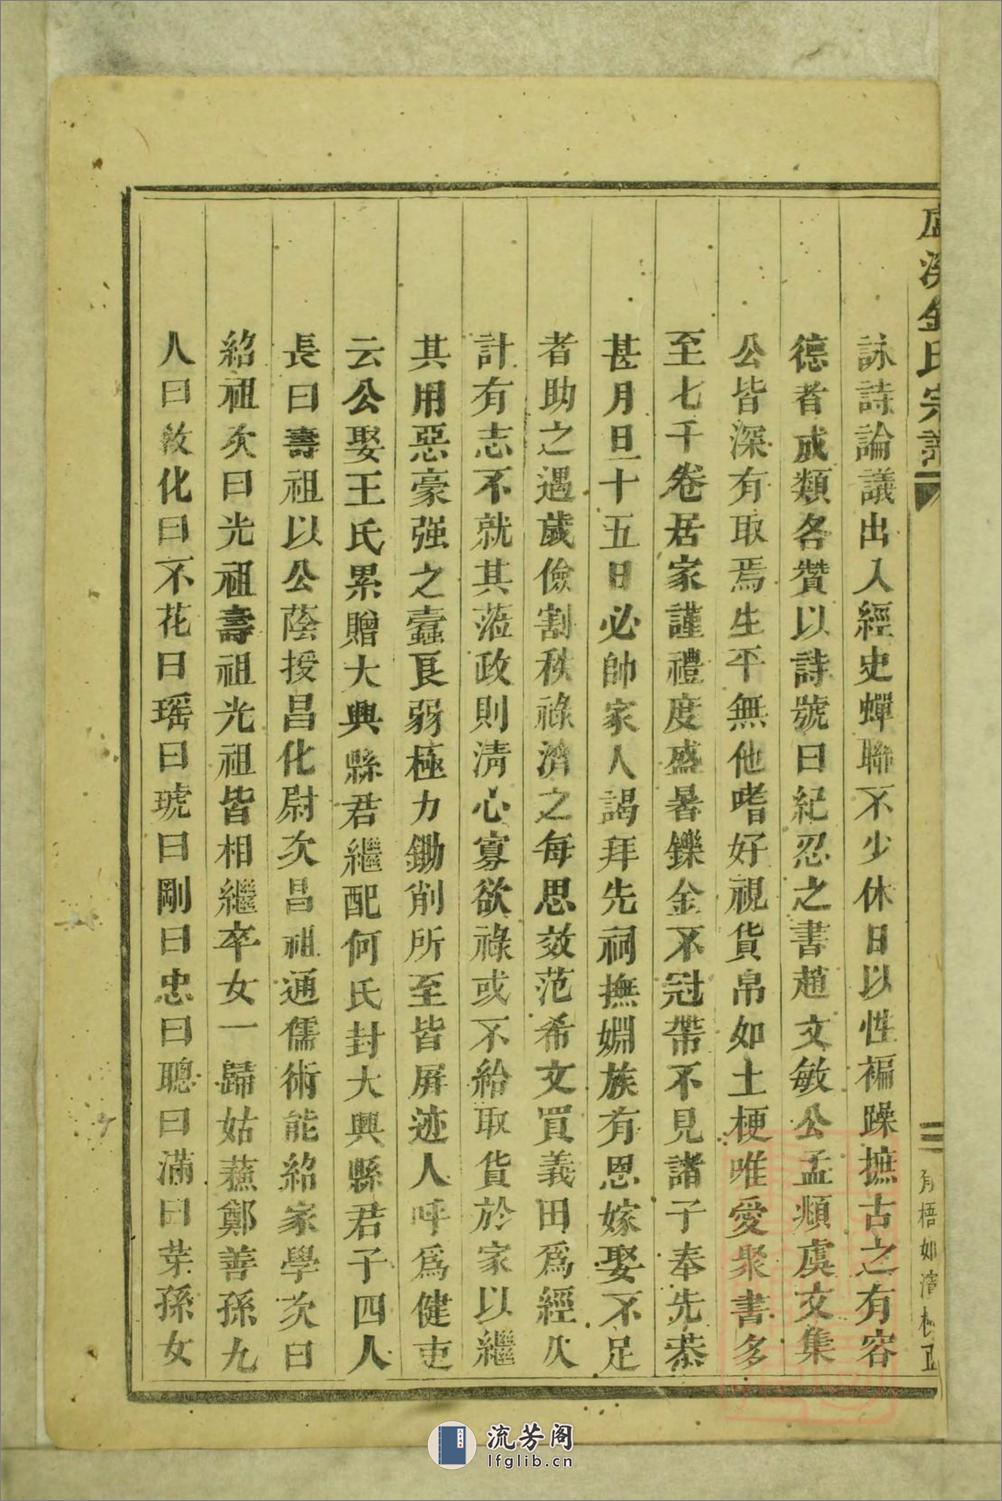 金氏宗譜
詠詩論議出入經史蟬聯不少休日以性褊躁摭古之有容
德者成類各贊以詩號曰紀忍之書趙文敏公孟頫虞文集
公皆深有取焉生平無他嗜好視貨帛如土梗唯愛聚書多
至七千卷居家謹禮度盛暑鑠金不冠帶不見諸子奉先恭
甚月日一十五日必帥家人謁拜先祠撫婣族有恩嫁娶不足
者助之遇歲儉割秩祿濟之每思效范希文買義田爲經久
計有志不就其蒞政則清心寡欲祿或不給取貨於家以繼
其用惡豪强之蠧良弱極力鋤削所至皆屏迹人呼爲健吏
云公娶王氏累贈大興縣君繼配何氏封大興縣君子四人
長曰壽祖以公蔭授昌化尉次昌祖通儒術能紹家學次曰
紹祖次曰光祖壽祖光祖皆相繼卒女一歸姑蘓鄭善孫九
人曰敎化曰不花曰瑶曰琥曰剛曰忠曰聰曰滿曰芽孫女
三
流芳阁
lfglib.cn